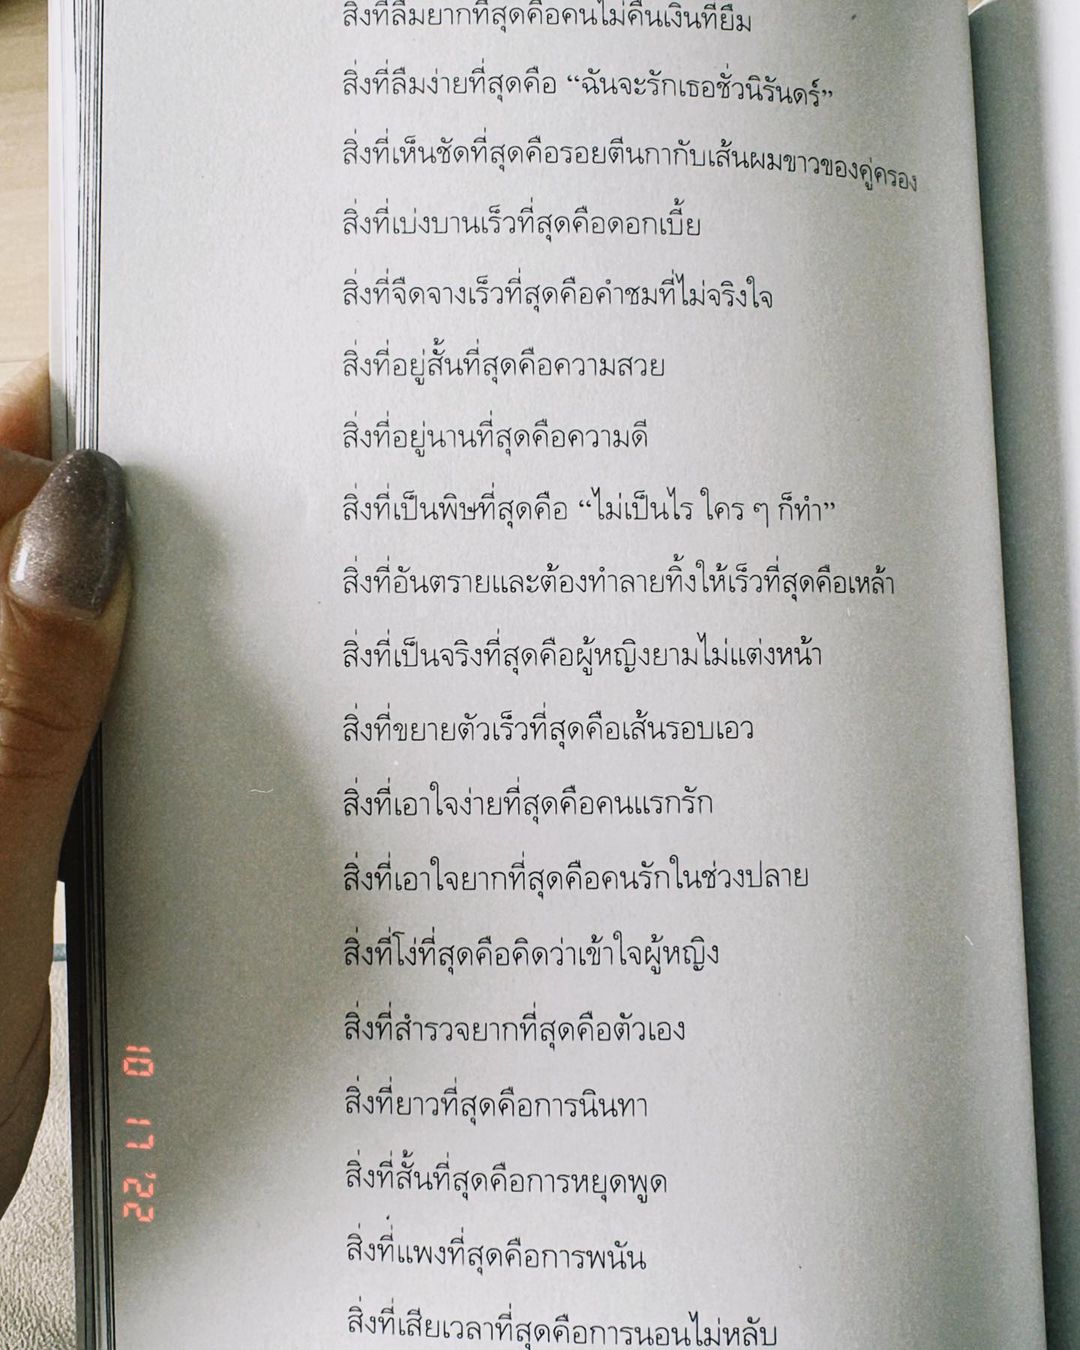 สิ่งที่ลืมยากที่สุดคือคนไม่คืนเงินที่ยืม
สิ่งที่ลืมง่ายที่สุดคือ “ฉันจะรักเธอชั่วนิรันดร์”
สิ่งที่เห็นชัดที่สุดคือรอยตีนกากับเส้นผมขาวของคู่ครอง
สิ่งที่เบ่งบานเร็วที่สุดคือดอกเบี้ย
สิ่งที่จืดจางเร็วที่สุดคือคำชมที่ไม่จริงใจ
สิ่งที่อยู่สั้นที่สุดคือความสวย
สิ่งที่อยู่นานที่สุดคือความดี
สิ่งที่เป็นพิษที่สุดคือ “ไม่เป็นไร ใคร ๆ ก็ทำ”
สิ่งที่อันตรายและต้องทำลายทิ้งให้เร็วที่สุดคือเหล้า
สิ่งที่เป็นจริงที่สุดคือผู้หญิงยามไม่แต่งหน้า
สิ่งที่ขยายตัวเร็วที่สุดคือเส้นรอบเอว
สิ่งที่เอาใจง่ายที่สุดคือคนแรกรัก
สิ่งที่เอาใจยากที่สุดคือคนรักในช่วงปลาย
สิ่งที่โง่ที่สุดคือคิดว่าเข้าใจผู้หญิง
สิ่งที่สำรวจยากที่สุดคือตัวเอง
สิ่งที่ยาวที่สุดคือการนินทา
สิ่งที่สั้นที่สุดคือการหยุดพูด
สิ่งที่แพงที่สุดคือการพนัน
สิ่งที่เสียเวลาที่สุดคือการนอนไม่หลับ
10 17 '22